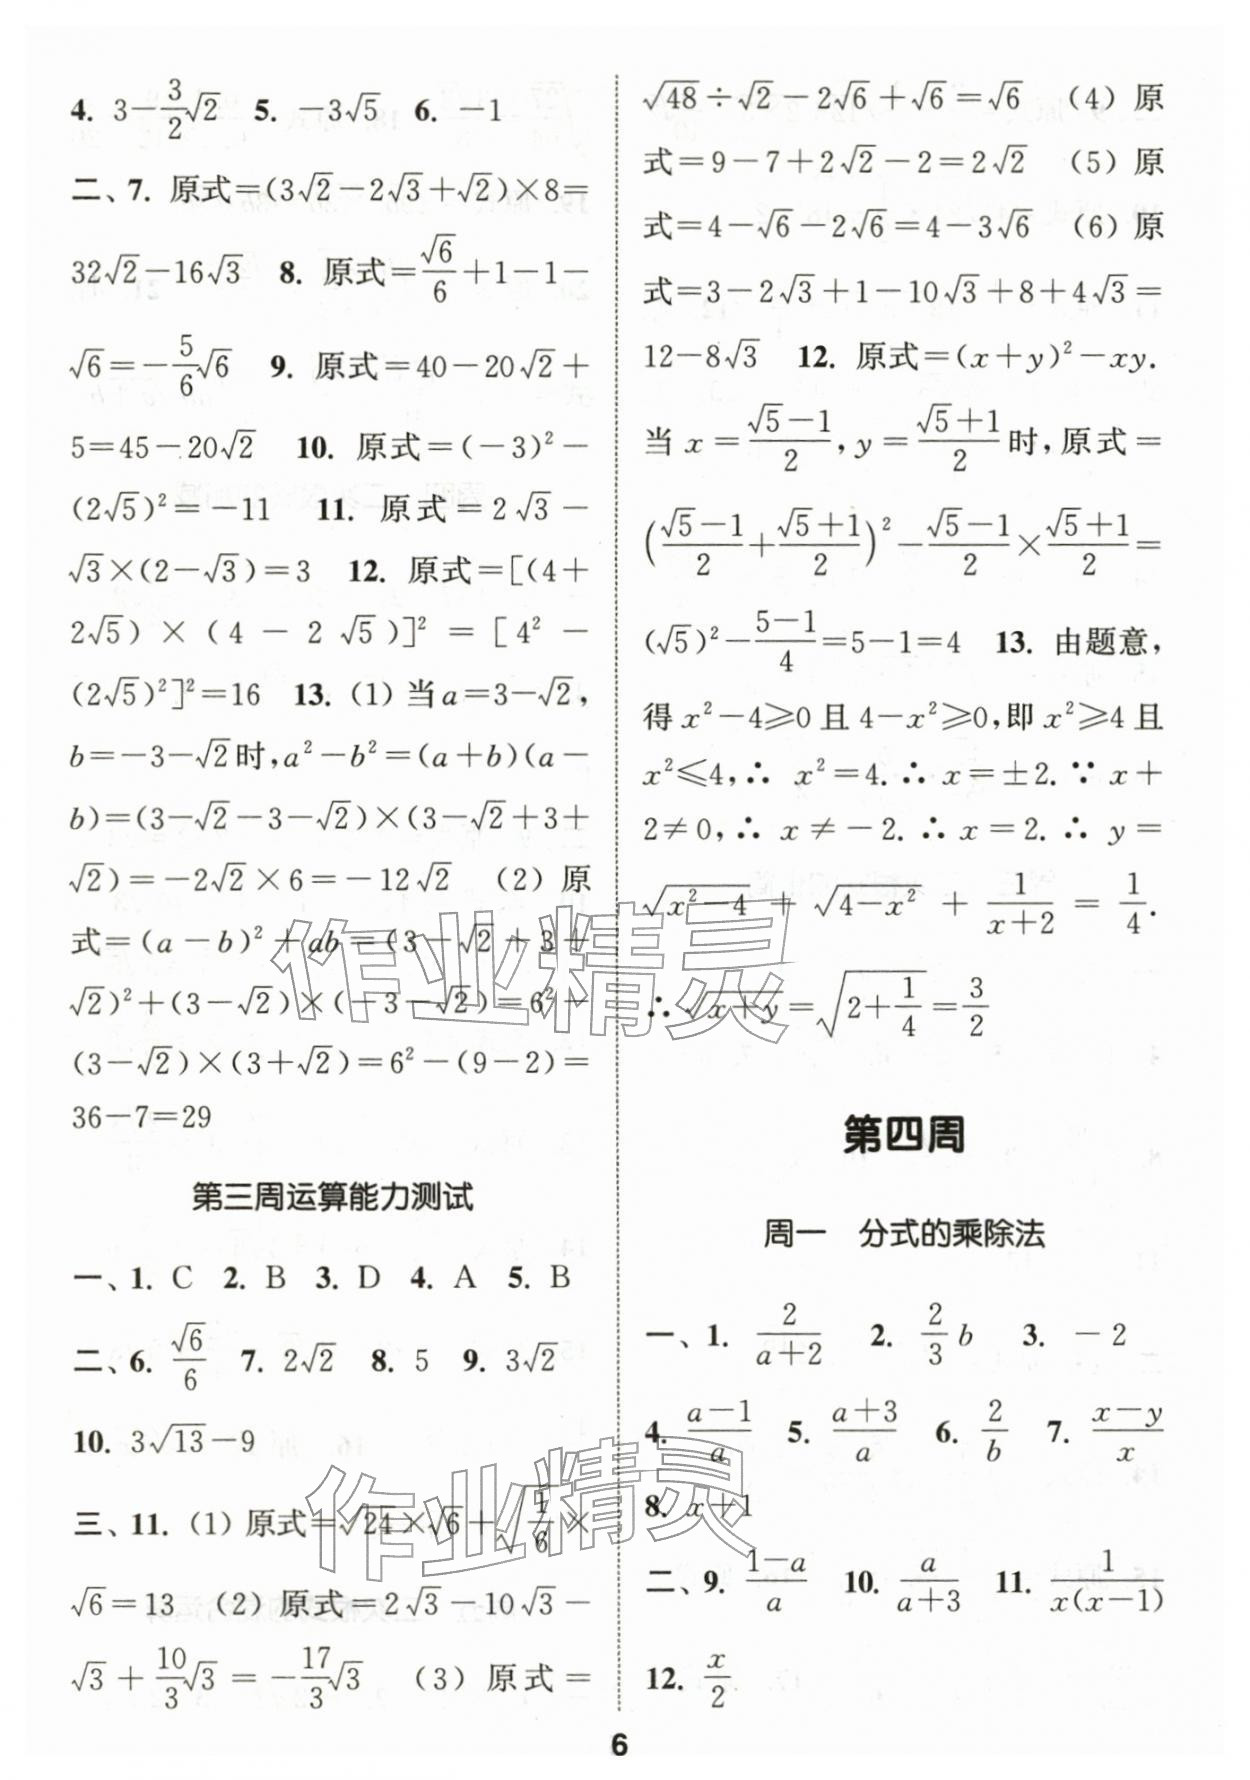 4. 3－3/2√2　5. －3√5　6. －1
二、7. 原式＝(3√2－2√3＋√2)×8＝
32√2－16√3　8. 原式＝√6/6＋1－1－
√6＝－5/6√6　9. 原式＝40－20√2＋
5＝45－20√2　10. 原式＝(－3)²－
(2√5)²＝－11　11. 原式＝2√3－
√3×(2－√3)＝3　12. 原式＝[(4＋
2√5)×(4－2√5)]²＝[4²－
(2√5)²]²＝16　13. (1) 当a＝3－√2,
b＝－3－√2时,a²－b²＝(a＋b)(a－
b)＝(3－√2－3－√2)×(3－√2＋3＋
√2)＝－2√2×6＝－12√2　(2) 原
式＝(a－b)²＋ab＝(3－√2＋3＋
√2)²＋(3－√2)×(－3－√2)＝6²－
(3－√2)×(3＋√2)＝6²－(9－2)＝
36－7＝29
第三周运算能力测试
一、1. C　2. B　3. D　4. A　5. B
二、6. √6/6　7. 2√2　8. 5　9. 3√2
10. 3√13－9
三、11. (1) 原式＝√24×√6＋√(1/6)×
√6＝13　(2) 原式＝2√3－10√3－
√3＋10/3√3＝－17/3√3　(3) 原式＝
√48÷√2－2√6＋√6＝√6　(4) 原
式＝9－7＋2√2－2＝2√2　(5) 原
式＝4－√6－2√6＝4－3√6　(6) 原
式＝3－2√3＋1－10√3＋8＋4√3＝
12－8√3　12. 原式＝(x＋y)²－xy.
当x＝(√5－1)/2,y＝(√5＋1)/2时,原式＝
((√5－1)/2＋(√5＋1)/2)²－(√5－1)/2×(√5＋1)/2＝
(√5)²－(5－1)/4＝5－1＝4　13. 由题意,
得x²－4≥0且4－x²≥0,即x²≥4且
x²≤4,∴ x²＝4. ∴ x＝±2. ∵ x＋
2≠0,∴ x≠－2. ∴ x＝2. ∴ y＝
√(x²－4)＋√(4－x²)＋1/(x＋2)＝1/4.
∴ √(x＋y)＝√(2＋1/4)＝3/2
第四周
周一　分式的乘除法
一、1. 2/(a＋2)　2. 2/3b　3. －2
4. (a－1)/a　5. (a＋3)/a　6. 2/b　7. (x－y)/x
8. x＋1
二、9. (1－a)/a　10. a/(a＋3)　11. 1/(x(x－1))
12. x/2
6
作业精灵
作业精灵